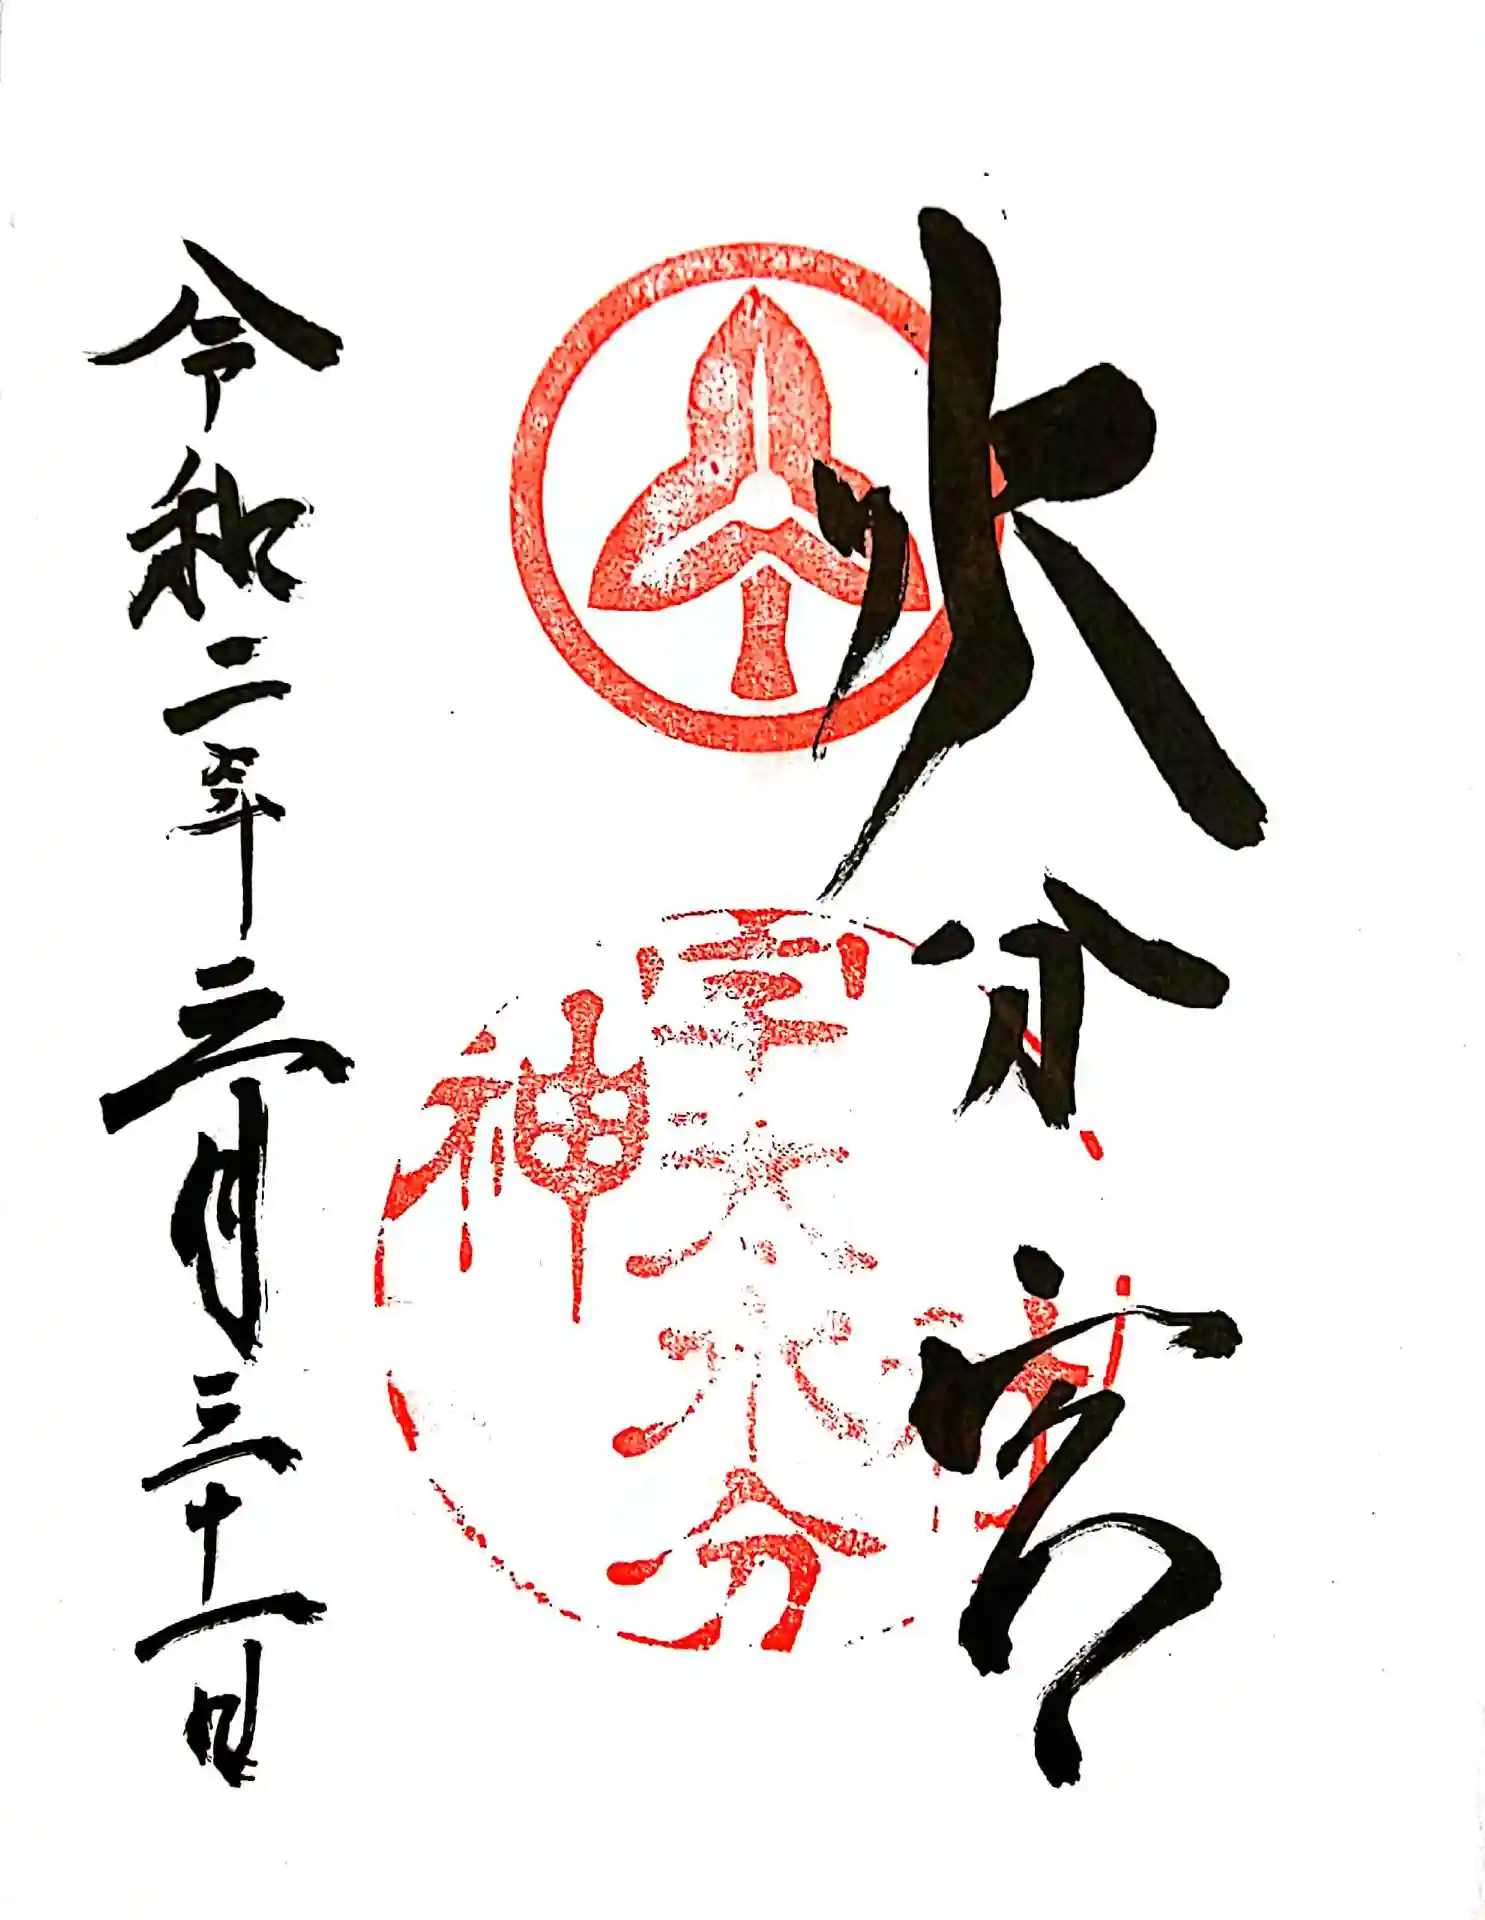 水分宮
宇太水分
神社
令和二年三月三十一日